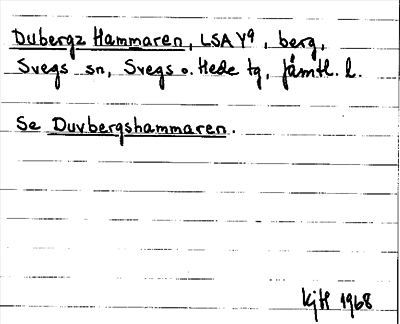 Dubergz Hammaren, LSA Y⁹, berg,
Svegs sn, Svegs o. Hede tg, Jämtl. l.
Se Duvbergshammaren.
KjH 1968